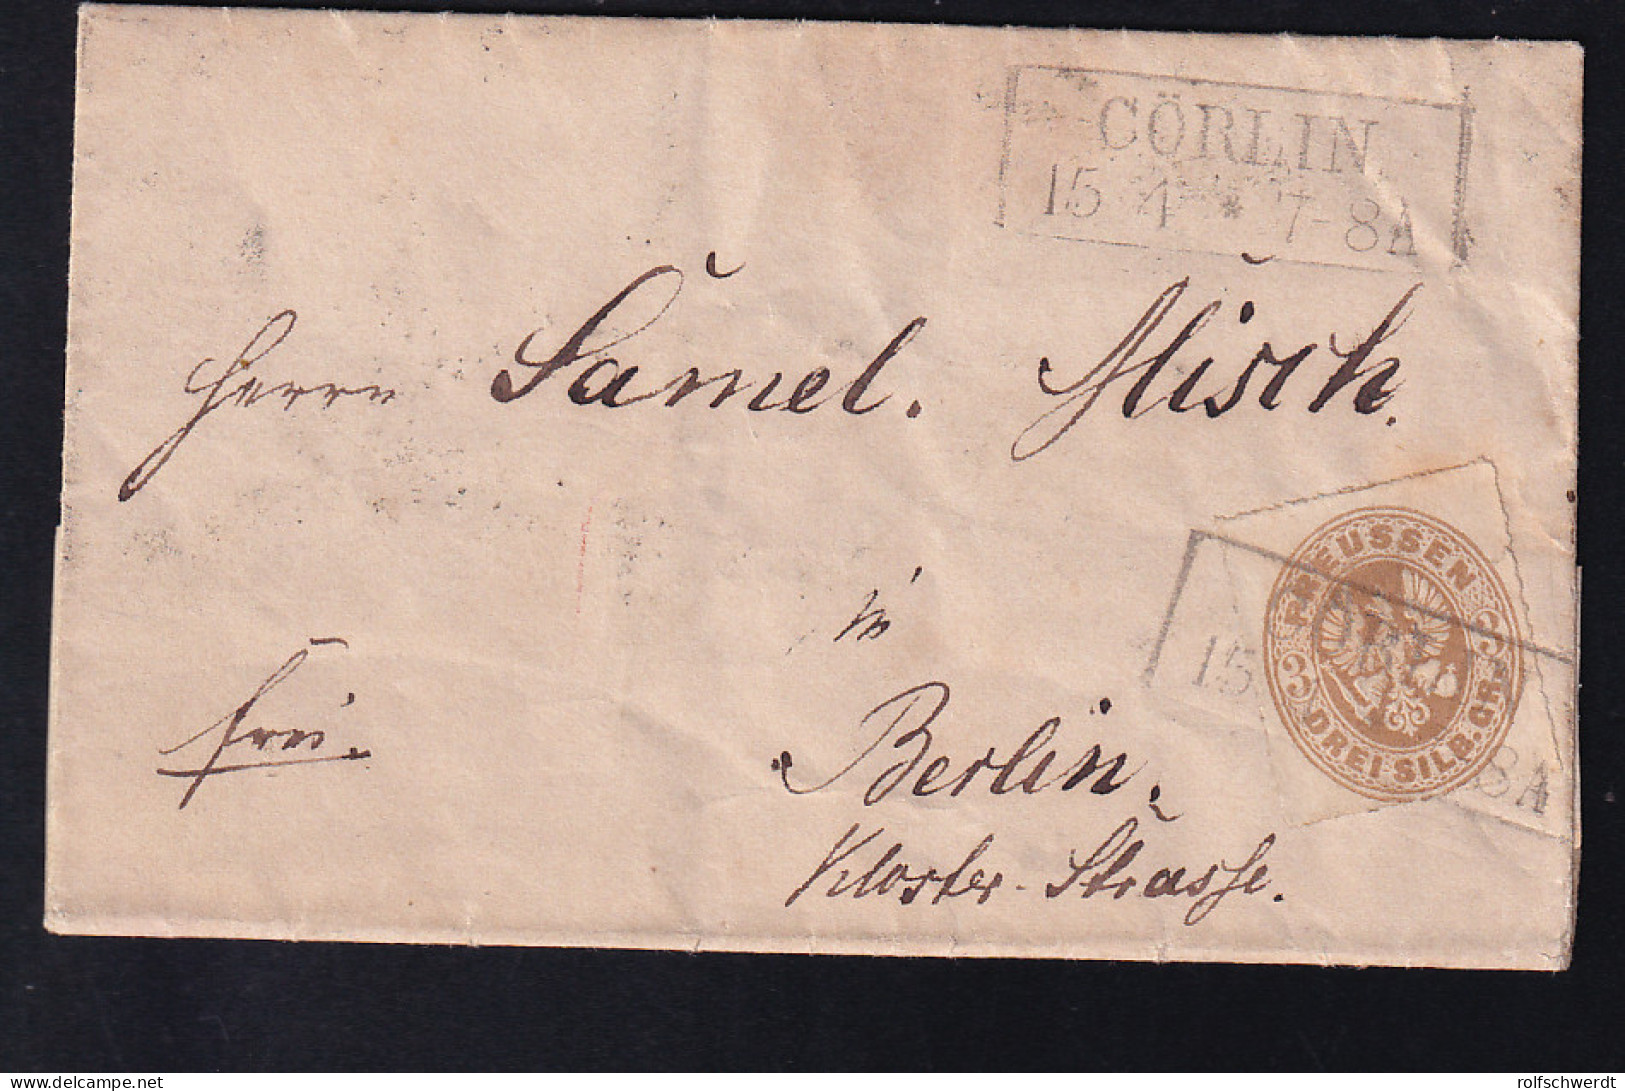 CÖRLIN
15 4 * 7-8A
Herrn Samel. Misch.
in
frei.
Berlin.
Kloster-Strasse.
PREUSSEN
3 3
DREI SILB. GR.
ÖRLIN
15 8A
www.delcampe.net
rolfschwerdt